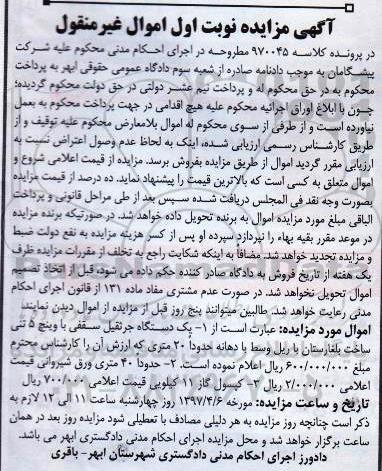 آگهی مزایده نوبت اول اموال غیرمنقول
در پرونده کلاسه ۹۷۰۰۴۵ مطروحه در اجرای احکام مدنی محکوم علیه شرکت
پیشگامان به موجب دادنامه صادره از شعبه سوم دادگاه عمومی حقوقی ابهر به پرداخت
محکوم به در حق محکوم له و پرداخت نیم عشر دولتی در حق دولت محکوم گردیده؛
چون با ابلاغ اوراق اجرائیه محکوم علیه هیچ اقدامی در جهت پرداخت محکوم به بعمل
نیاورده است و از طرفی از سوی محکوم له اموال بلامعارض محکوم علیه توقیف و از
طریق کارشناس رسمی ارزیابی شده، اینک به لحاظ عدم وصول اعتراض نسبت به
ارزیابی مقرر گردید اموال از طریق مزایده بفروش برسد. مزایده از قیمت اعلامی شروع و
اموال متعلق به کسی است که بالاترین قیمت را پیشنهاد نماید. ده درصد از قیمت مزایده
بصورت وجه نقد فی المجلس دریافت شده سپس بعد از طی مراحل قانونی و پرداخت
الباقی مبلغ مورد مزایده اموال به برنده تحویل داده خواهد شد. در صورتیکه برنده مزایده
در موعد مقرر بقیه بهاء را نپردازد سپرده او پس از کسر هزینه مزایده به نفع دولت ضبط
و مزایده تجدید خواهد شد. مضافاً به اینکه شکایت راجع به تخلف از مقررات مزایده ظرف
یک هفته از تاریخ فروش به دادگاه صادر کننده حکم داده می شود، قبل از اتخاذ تصمیم
اموال تحویل نخواهد شد. در صورت عدم مشتری مفاد ماده ۱۳۱ از قانون اجرای احکام
مدنی رعایت خواهد شد. طالبین میتوانند پنج روز قبل از مزایده از اموال دیدن نمایند.
اموال مورد مزایده: عبارت است از ۱- یک دستگاه جرثقیل سقفی با وینچ ۵ تنی
ساخت بلغارستان با ریل وسط با دهانه حدوداً ۲۰ متری که ارزش آن را کارشناس محترم
مبلغ ۶۰۰/۰۰۰/۰۰۰ ریال اعلام نموده است. ۲- حدوداً ۴۰ متری ورق شیروانی قیمت
اعلامی ۲/۰۰۰/۰۰۰ ریال ۳- کپسول گاز ۱۱ کیلویی قیمت اعلامی ۷۰۰/۰۰۰ ریال
تاریخ و ساعت مزایده: مورخه ۱۳۹۷/۴/۶ روز چهارشنبه ساعت ۱۱ الی ۱۲ لازم به
ذکر است چنانچه روز مزایده به هر دلیلی مصادف با تعطیلی شود مزایده روز بعد در همان
ساعت برگزار خواهد شد و محل مزایده اجرای احکام مدنی دادگستری ابهر می باشد.
دادورز اجرای احکام مدنی دادگستری شهرستان ابهر- باقری